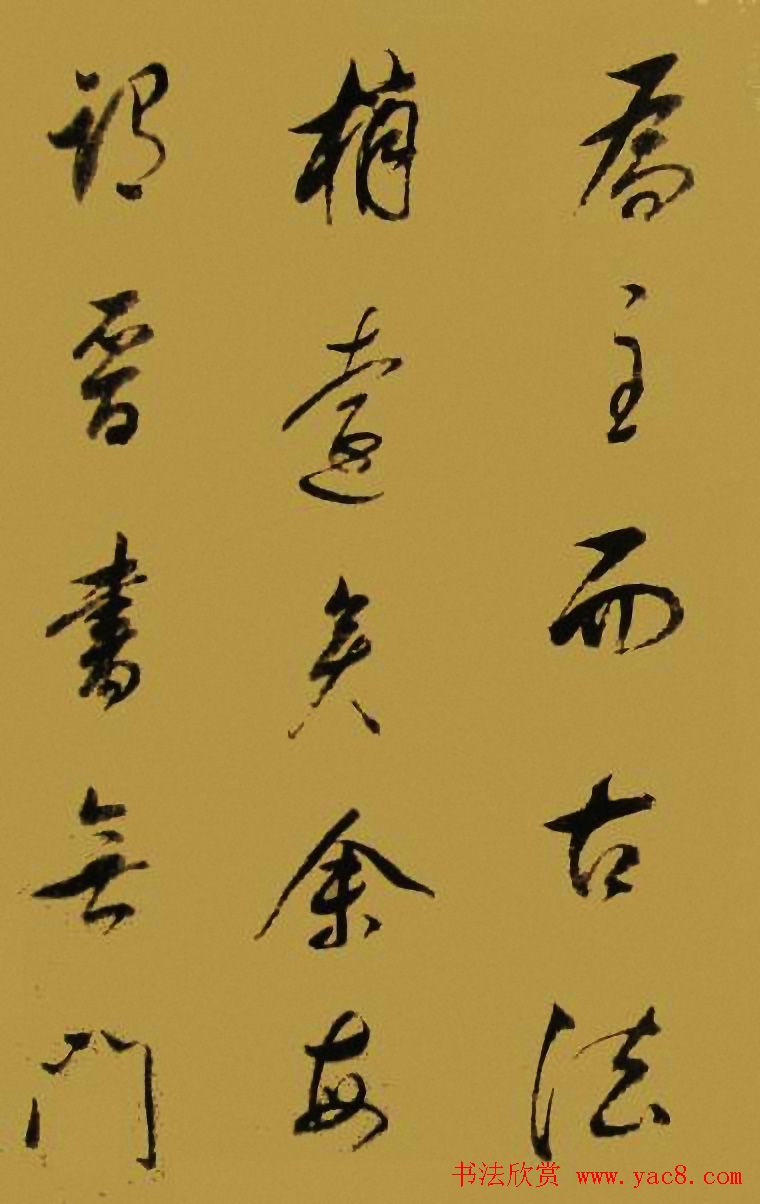 主而古法
稍遠矣余每
謂晉書無門
书法欣赏 www.yac8.com